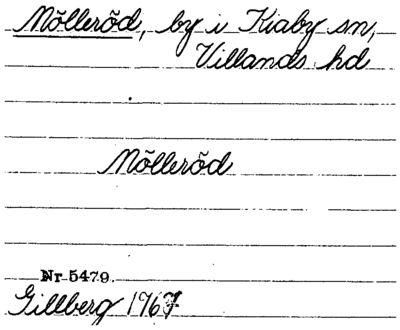 Mölleröd, by i Kiaby sn,
Villands hd
Mölleröd
Nr 5479.
Gillberg 1967